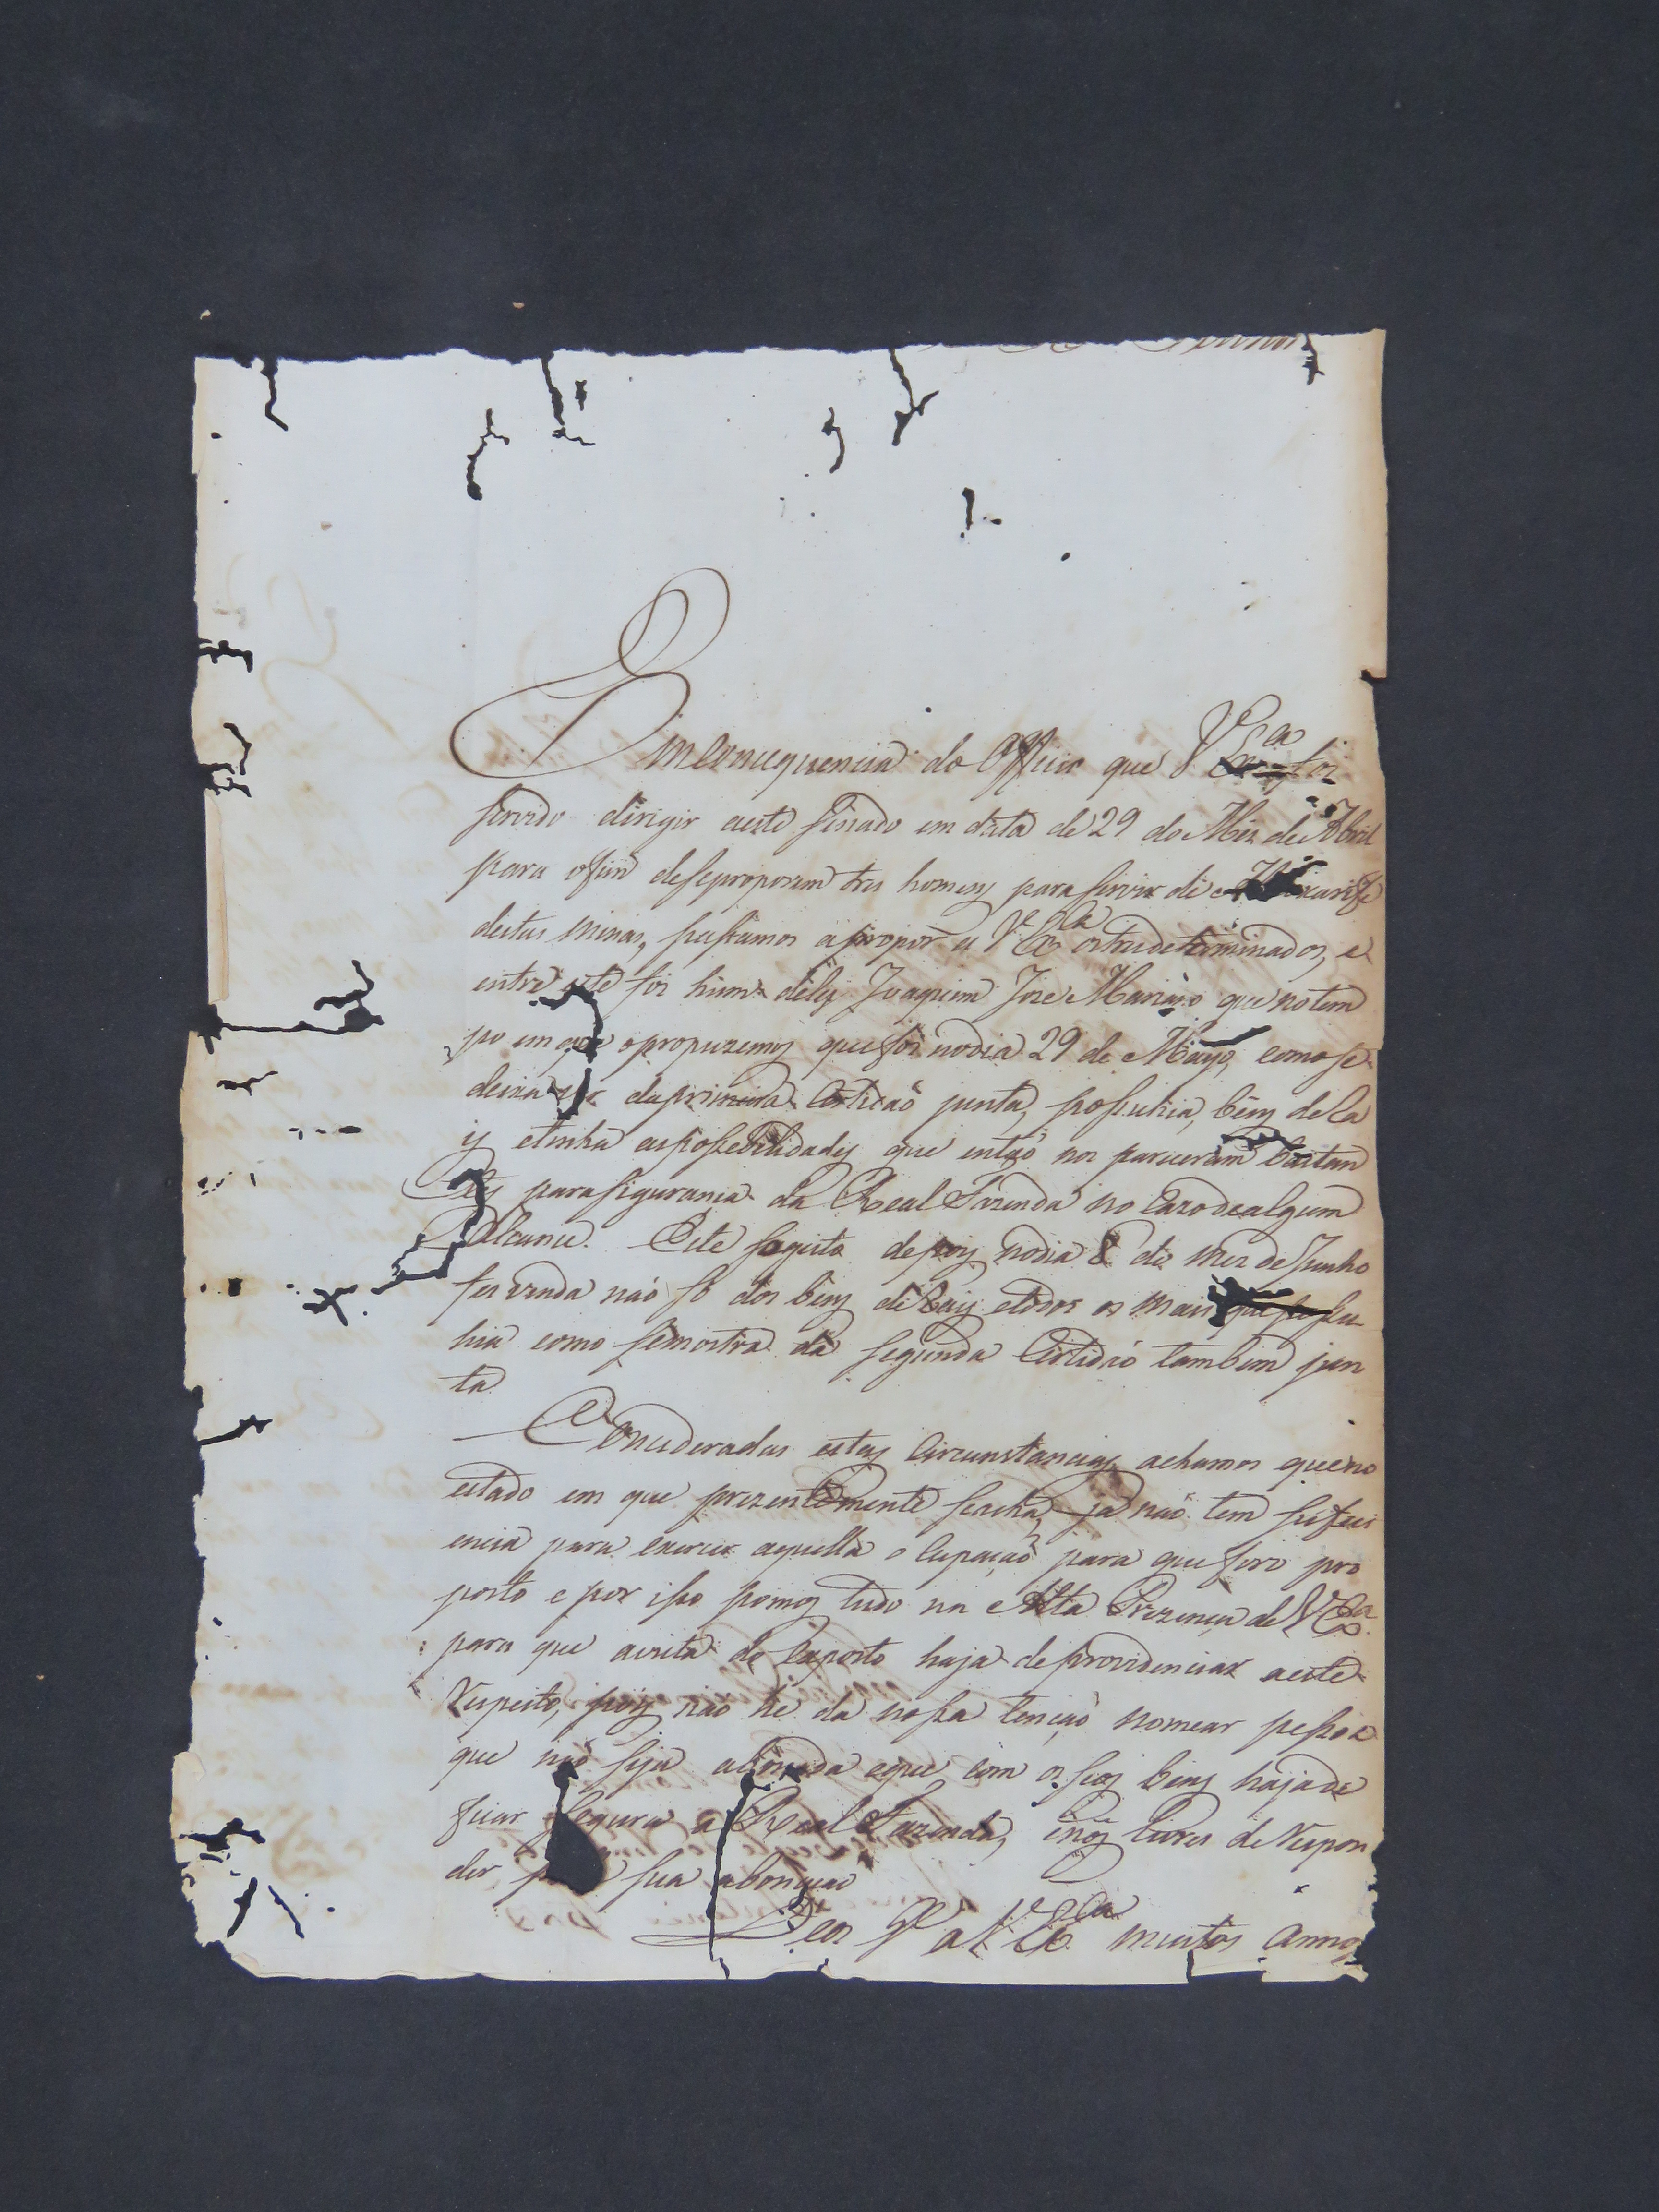 Em concequencia do Officio que V Exa foi
servido dirigir aeste Senado em data de 29 do Mez de Abril
para ofim deseproporem tres homens para servir de Almoxarife
destas Minas, passamos apropor a V Exa ostresdeterminados, e
entre este foi hum delles Joaquim Joze Mariano que notem
po em que opropuzemos que foi nodia 29 de Mayo, comose
deixa ver daprimeira Certidaõ junta, possuhia, bens deRa
is etinha aspossebilidades que então nos pareceram bastan
tes parasigurança da Real Fazenda no Cazodealgum
Alcance. Este sogeito depois nodia 8 do Mez de Junho
fes venda naõ só dos bens deRais etodos os mais que possu
hia como semostra da segunda Certidaõ tambem jun
ta
Concideradas estas Circunstancias, achamos queno
estado em que prezentemente seacha, já naõ tem sufeci
encia para exercer aquella oCupaçaõ para que fora pro
posto e por isso pomos tudo na Alta Prezença de V Exa
para que avista do Exposto haja deprovidenciar aeste
Respeito, pois naõ he da nossa tençaõ nomear pessoa
que naõ seja abonada eque com os seos bens hajade
ficar segura a Real Fazenda, enos livres de Respon
der sua abonaçaõ
Deos Ge a V Exa muitos annos